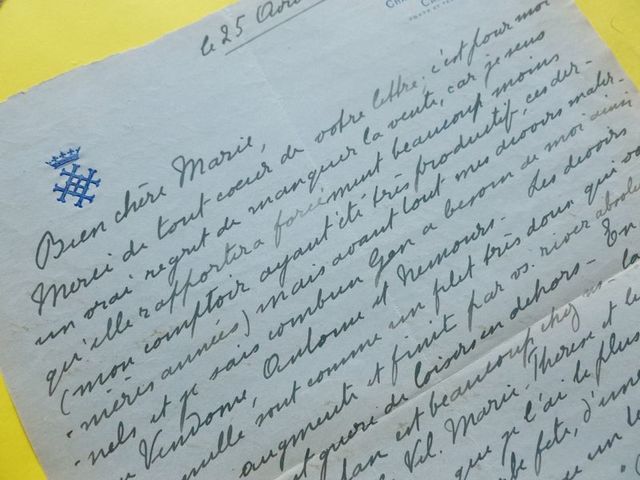 le 25 Août
Bien chère Marie,
Merci de tout coeur de votre lettre; c'est pour moi
un vrai regret de manquer la vente, car je sens
qu'elle rapportera forcément beaucoup moins
(mon comptoir ayant été très productif, ces der-
-nières années) mais avant tout mes devoirs mater-
-nels et je sais combien Gen a besoin de moi ainsi
Vendôme, Antoine et Nemours. Les devoirs
famille sont comme un filet très doux qui va
augmente et finit par vs. river absolu
et guère de loisirs en dehors - En
est beaucoup chez ns - la
Vel. Marie-Thérèse et le
que je l'ai le plus
de fête, d'une